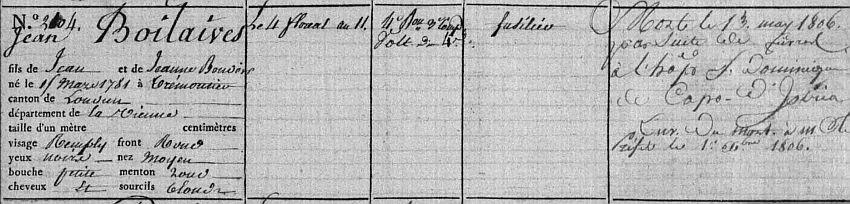 N.º 2104.
Jean Boilaives
fils de Jean et de Jeanne
né le 15 Mars 1781 à
canton de Loudun
département de la Vienne
taille d'un mètre centimètres
visage Remply front Rond
yeux noirs nez Moyen
bouche petite menton rond
cheveux et sourcils blonds
Le 4 floréal an 11.
4e Bon
fusilier
Mort le 13 may 1806.
par Suite de fièvre
à l'hôpal St. Dominique
de Capo-d'Istria
du mort à
le 1er 1806.